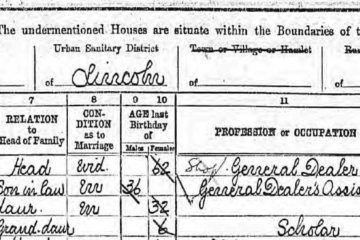 The undermentioned Houses are situate within the Boundaries of t
Urban Sanitary District Town or Village or Hamlet
of Lincoln of of
7 8 9 10 11
RELATION to Head of Family CONDITION as to Marriage AGE last Birthday of Males Females PROFESSION or OCCUPATION
Head Wid. 62 Shop General Dealer
Son in law 36 General Dealer's Assis
daur. 32
Grand daur 6 Scholar